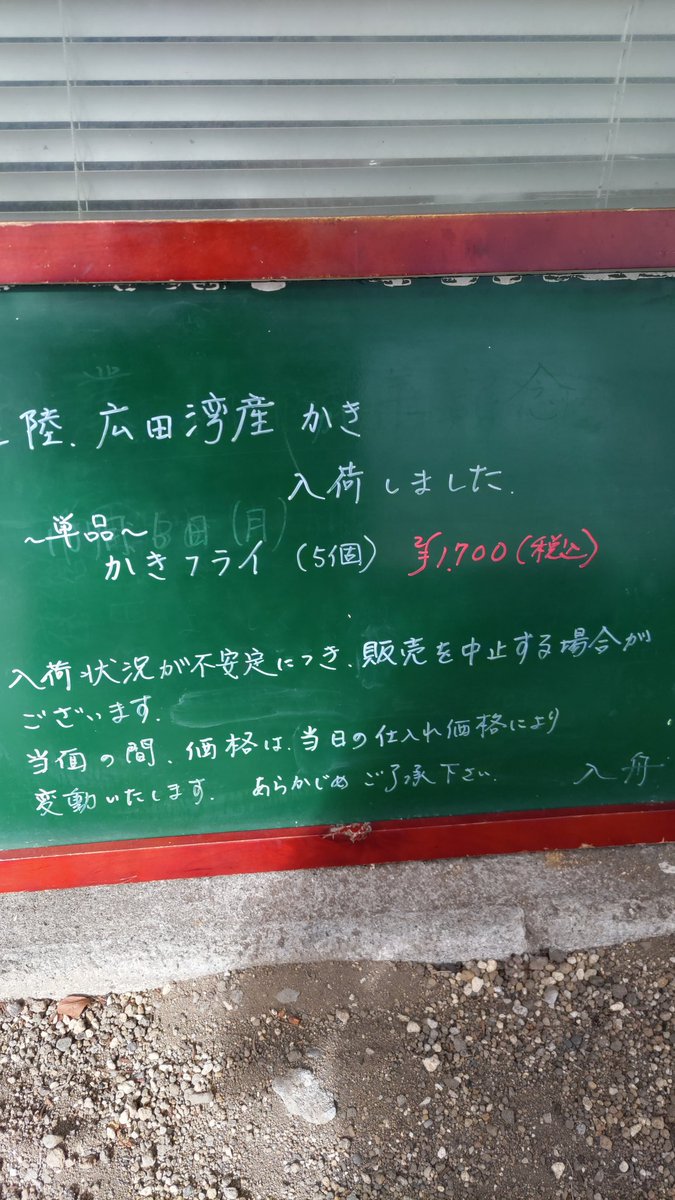 陸.広田湾産 かき
入荷しました.
~単品~
かきフライ (5個) ¥1,700(税込)
入荷状況が不安定につき、販売を中止する場合が
ございます.
当面の間、価格は、当日の仕入れ価格により
変動いたします. あらかじめ ご了承下さい.
入舟